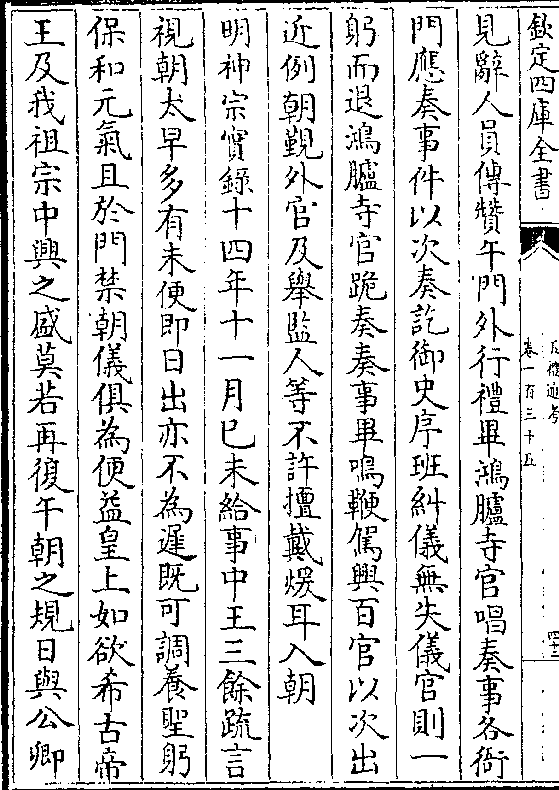 欽定四庫全書
五禮通考
卷一百三十五
四十三
見辭人員傳贊午門外行禮畢鴻臚寺官唱奏事各衙
門應奏事件以次奏訖御史序班糾儀無失儀官則一
躬而退鴻臚寺官跪奏奏事畢鳴鞭駕興百官以次出
近例朝覲外官及舉監人等不許擅戴煖耳入朝
明神宗實錄十四年十一月己未給事中王三餘疏言
視朝太早多有未便即日出亦不為遲既可調養聖躬
保和元氣且於門禁朝儀俱為便益皇上如欲希古帝
王及我祖宗中興之盛莫若再復午朝之規日與公卿